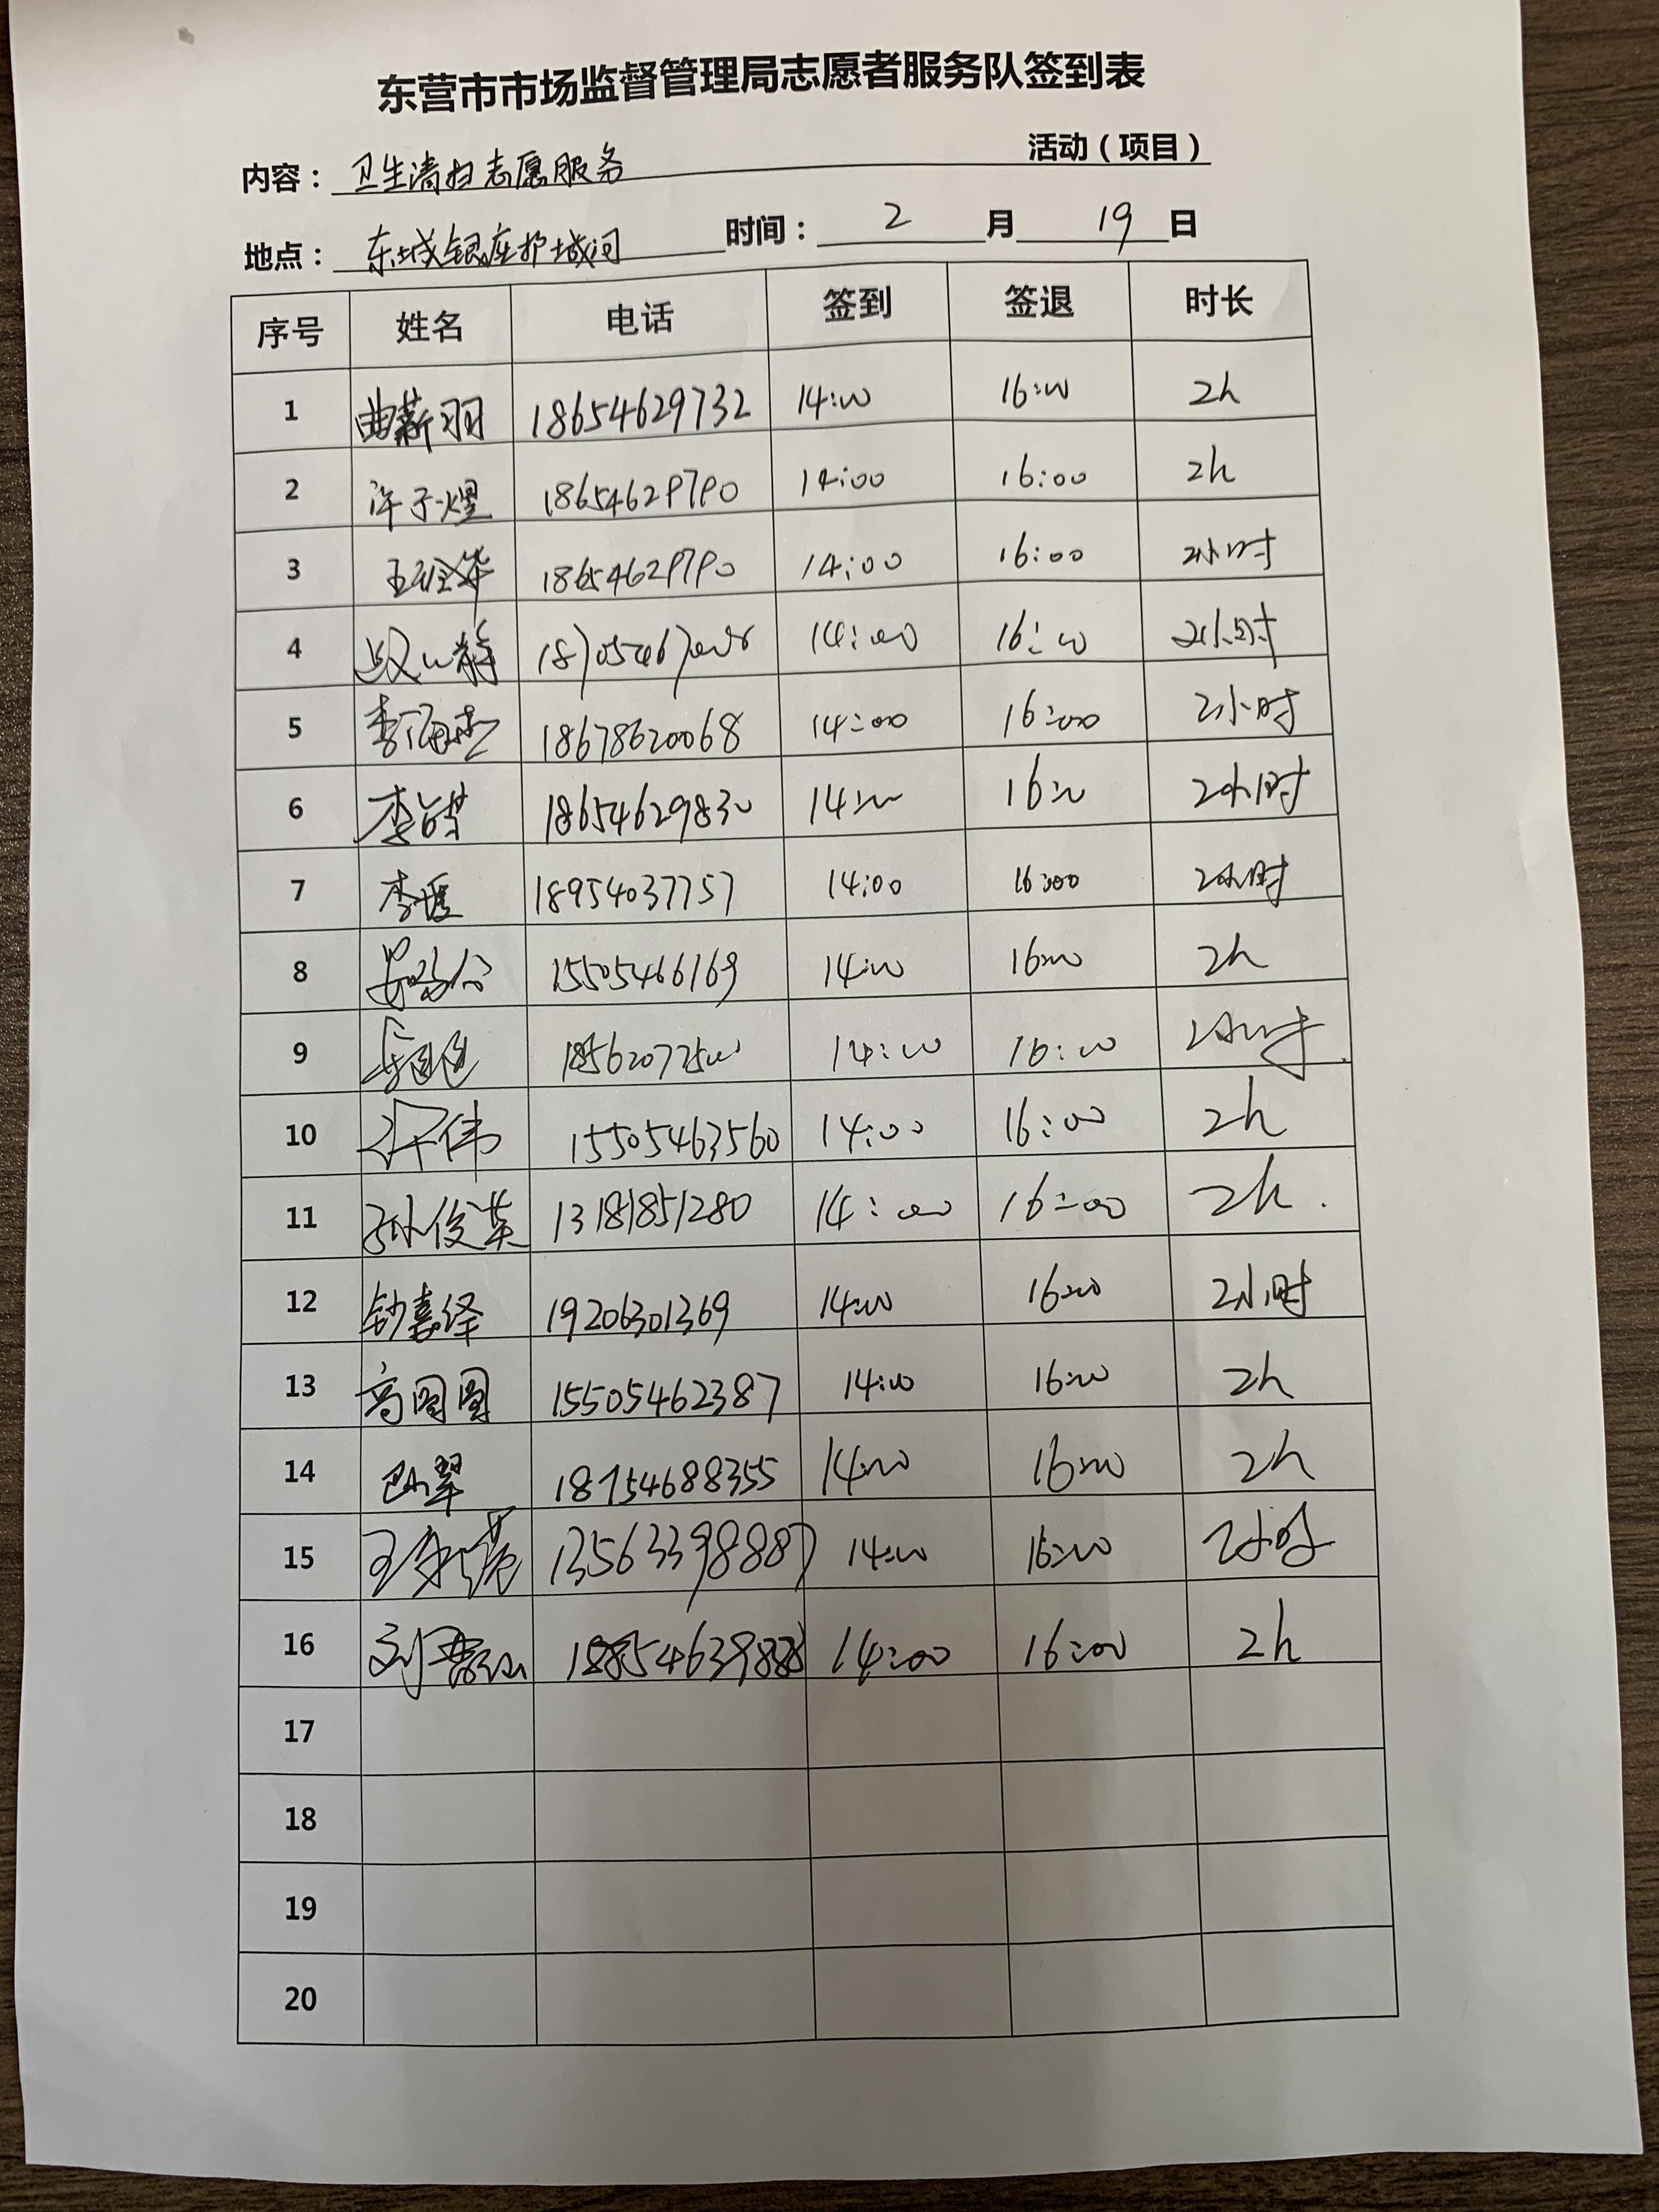 东营市市场监督管理局志愿者服务队签到表
内容：卫生清扫志愿服务 活动（项目）
地点：东城银座护城河 时间：2月19日
序号 姓名 电话 签到 签退 时长
1 曲薪羽 18654629732 14:00 16:00 2h
2 许子煜 18654629790 14:00 16:00 2h
3 18654629790 14:00 16:00 2小时
4 14:00 16:00 2小时
5 18678620068 14:00 16:00 2小时
6 李 18654629830 14:00 16:00 2小时
7 李 18954037757 14:00 16:00 2小时
8 15505466169 14:00 16:00 2h
9 14:00 16:00 2小时
10 伟 15505463560 14:00 16:00 2h
11 孙俊英 13181851280 14:00 16:00 2h.
12 钞嘉泽 19206301369 14:00 16:00 2小时
13 高圆圆 15505462387 14:00 16:00 2h
14 18754688355 14:00 16:00 2h
15 王 13563398887 14:00 16:00 2小时
16 刘 14:00 16:00 2h
17
18
19
20